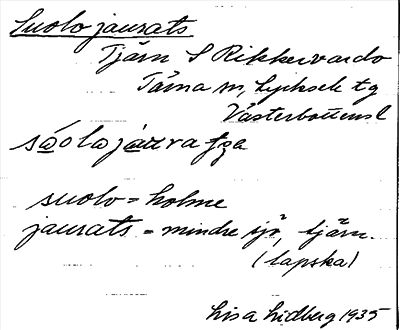 Suolojaurats
Tjärn S Rikkervardo
Tärna sn, Lycksele tg
Västerbottens l
såolajaura
suolo = holme
jaurats = mindre sjö, tjärn.
(lapska)
Lisa Lidberg 1935